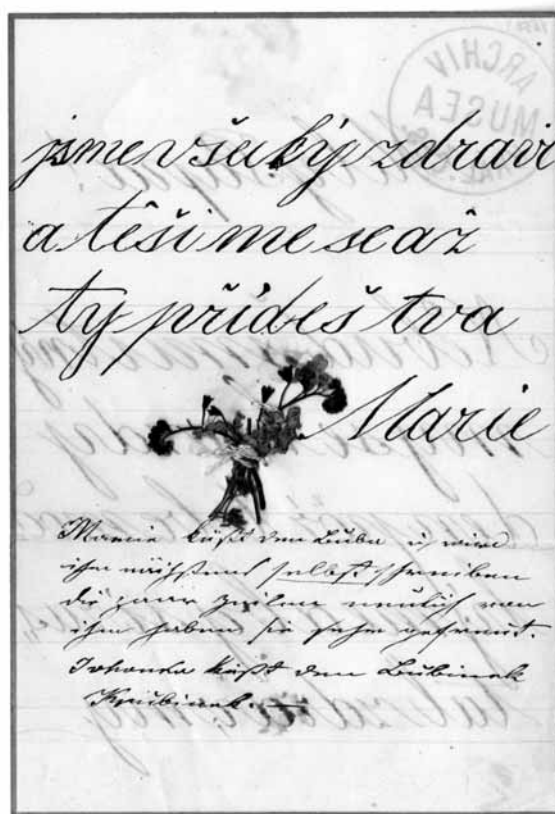 ARCHIV
MUSEA
jsme všecky zdravi
a těšíme se až
ty přídeš tva
Marie
Mamie küßt den Bube u. wird
ihn nächstens selbst schreiben
die paar Zeilen neulich von
ihm haben sie sehr gefreut.
Johanka küßt den Bubinek